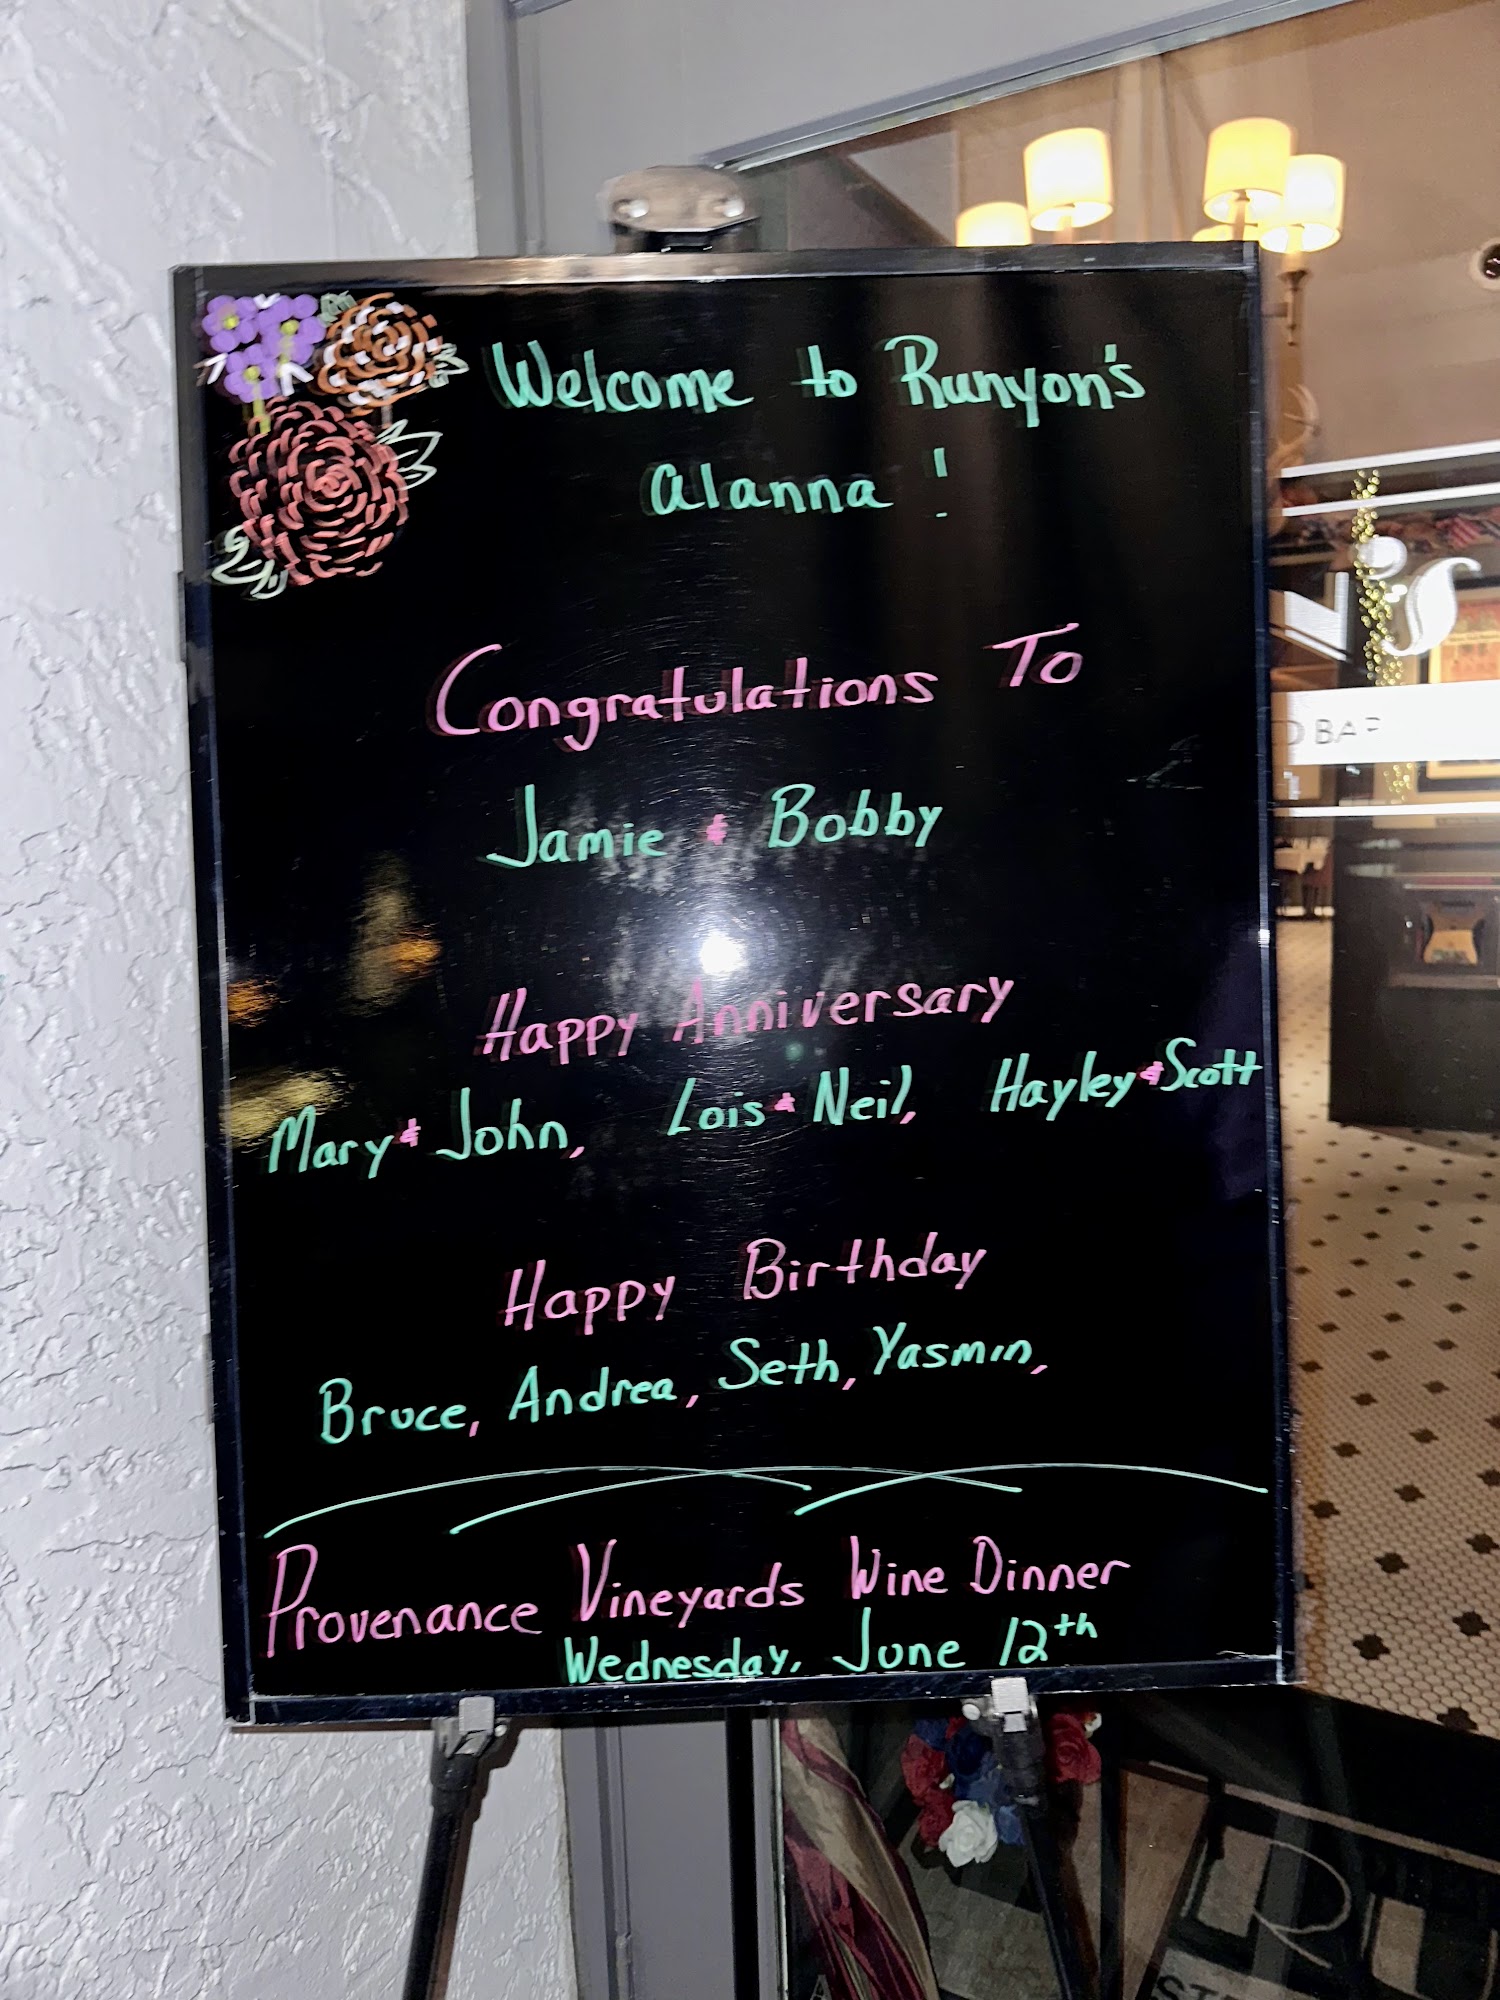 Welcome to Runyon's
Alanna!
Congratulations To
Jamie & Bobby
Happy Anniversary
Mary & John, Lois & Neil, Hayley & Scott
Happy Birthday
Bruce, Andrea, Seth, Yasmin,
Provenance Vineyards Wine Dinner
Wednesday, June 12th
N's
D BAR
RU
ST